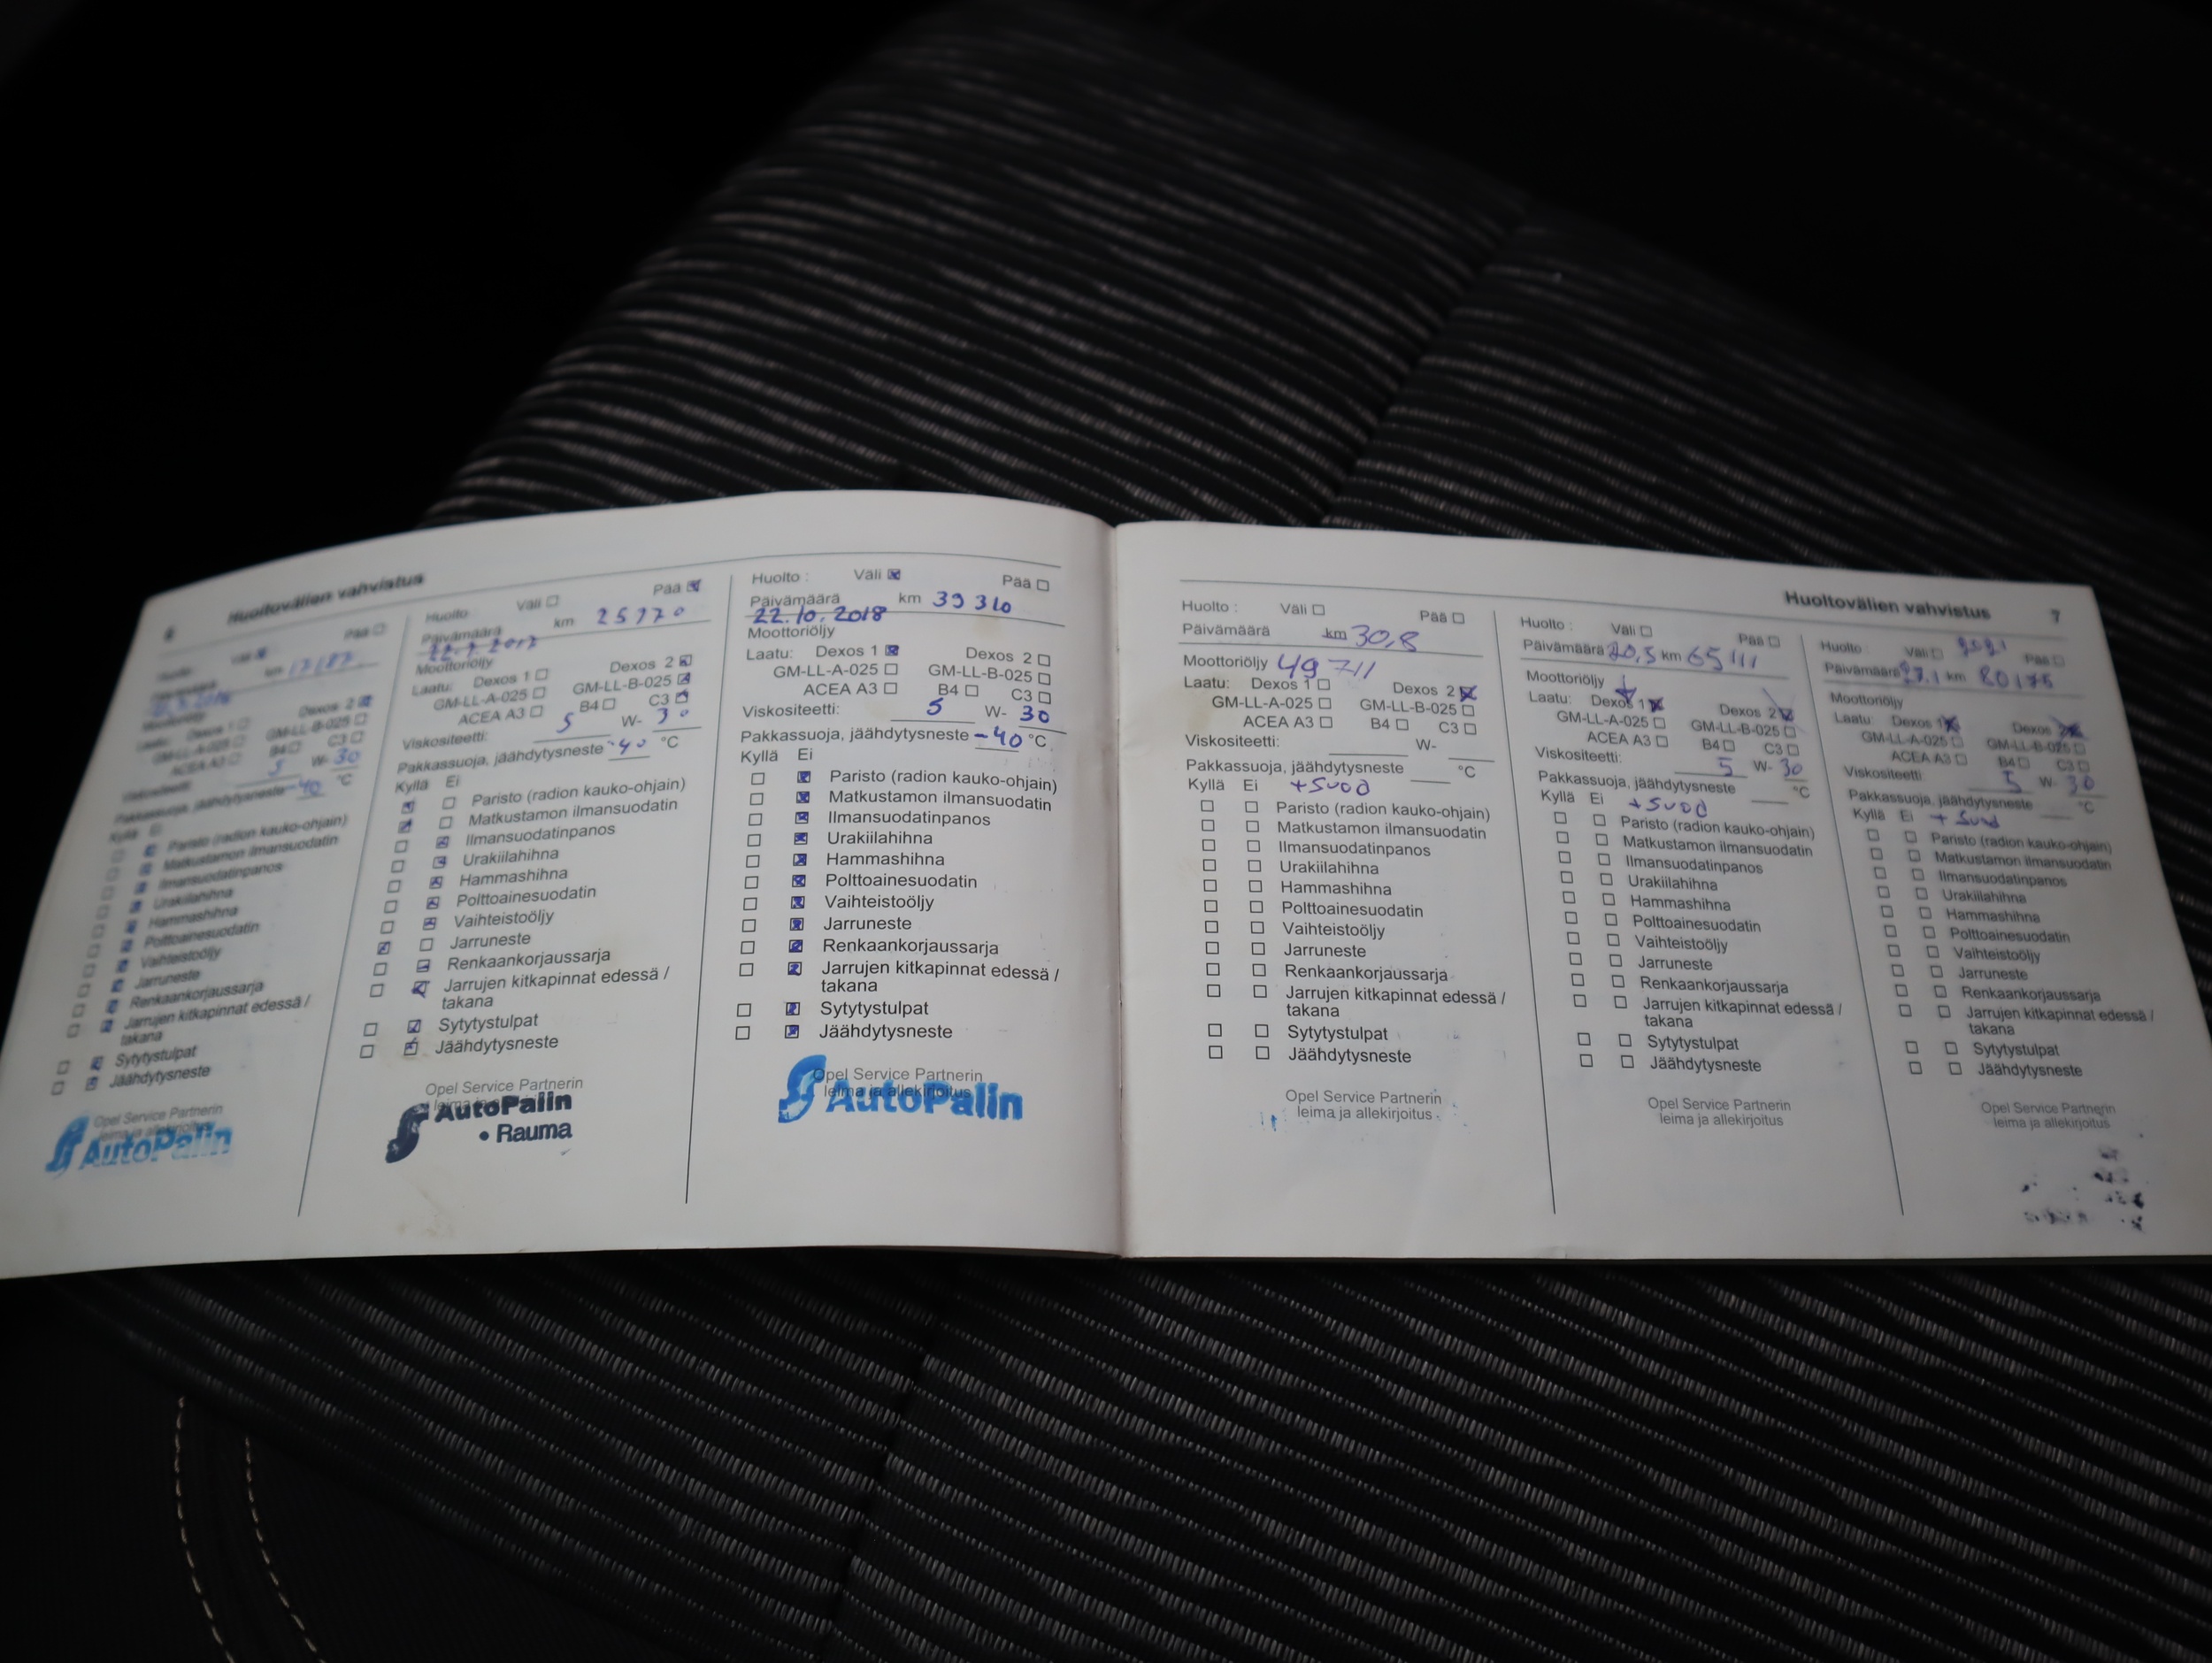 6 Huoltovälien vahvistus
Huolto: Väli Pää
Päivämäärä km 17187
Moottoriöljy
Laatu: Dexos 1 Dexos 2
GM-LL-A-025 GM-LL-B-025
ACEA A3 B4 C3
Viskositeetti: 5 W- 30
Pakkassuoja, jäähdytysneste -40 °C
Kyllä Ei
Paristo (radion kauko-ohjain)
Matkustamon ilmansuodatin
Ilmansuodatinpanos
Urakiilahihna
Hammashihna
Polttoainesuodatin
Vaihteistoöljy
Jarruneste
Renkaankorjaussarja
Jarrujen kitkapinnat edessä /
takana
Sytytystulpat
Jäähdytysneste
Opel Service Partnerin
leima ja allekirjoitus
AutoPalin
Huolto: Väli Pää
Päivämäärä km 25770
Moottoriöljy
Laatu: Dexos 1 Dexos 2
GM-LL-A-025 GM-LL-B-025
ACEA A3 B4 C3
Viskositeetti: 5 W- 30
Pakkassuoja, jäähdytysneste -40 °C
Kyllä Ei
Paristo (radion kauko-ohjain)
Matkustamon ilmansuodatin
Ilmansuodatinpanos
Urakiilahihna
Hammashihna
Polttoainesuodatin
Vaihteistoöljy
Jarruneste
Renkaankorjaussarja
Jarrujen kitkapinnat edessä /
takana
Sytytystulpat
Jäähdytysneste
Opel Service Partnerin
leima ja allekirjoitus
AutoPalin
• Rauma
Huolto : Väli Pää
Päivämäärä km 39310
22.10.2018
Moottoriöljy
Laatu: Dexos 1 Dexos 2
GM-LL-A-025 GM-LL-B-025
ACEA A3 B4 C3
Viskositeetti: 5 W- 30
Pakkassuoja, jäähdytysneste -40 °C
Kyllä Ei
Paristo (radion kauko-ohjain)
Matkustamon ilmansuodatin
Ilmansuodatinpanos
Urakiilahihna
Hammashihna
Polttoainesuodatin
Vaihteistoöljy
Jarruneste
Renkaankorjaussarja
Jarrujen kitkapinnat edessä /
takana
Sytytystulpat
Jäähdytysneste
Opel Service Partnerin
leima ja allekirjoitus
AutoPalin
Huoltovälien vahvistus 7
Huolto : Väli Pää
Päivämäärä km 30,8
Moottoriöljy 49711
Laatu: Dexos 1 Dexos 2
GM-LL-A-025 GM-LL-B-025
ACEA A3 B4 C3
Viskositeetti: W-
Pakkassuoja, jäähdytysneste °C
Kyllä Ei +suod
Paristo (radion kauko-ohjain)
Matkustamon ilmansuodatin
Ilmansuodatinpanos
Urakiilahihna
Hammashihna
Polttoainesuodatin
Vaihteistoöljy
Jarruneste
Renkaankorjaussarja
Jarrujen kitkapinnat edessä /
takana
Sytytystulpat
Jäähdytysneste
Opel Service Partnerin
leima ja allekirjoitus
Huolto : Väli Pää
Päivämäärä 20,5 km 65111
Moottoriöljy
Laatu: Dexos 1 Dexos 2
GM-LL-A-025 GM-LL-B-025
ACEA A3 B4 C3
Viskositeetti: 5 W- 30
Pakkassuoja, jäähdytysneste °C
Kyllä Ei +suod
Paristo (radion kauko-ohjain)
Matkustamon ilmansuodatin
Ilmansuodatinpanos
Urakiilahihna
Hammashihna
Polttoainesuodatin
Vaihteistoöljy
Jarruneste
Renkaankorjaussarja
Jarrujen kitkapinnat edessä /
takana
Sytytystulpat
Jäähdytysneste
Opel Service Partnerin
leima ja allekirjoitus
Huolto : Väli 2021 Pää
Päivämäärä 27,1 km 80175
Moottoriöljy
Laatu: Dexos 1 Dexos
GM-LL-A-025 GM-LL-B-025
ACEA A3 B4 C3
Viskositeetti 5 W- 30
Pakkassuoja, jäähdytysneste °C
Kyllä Ei + suod
Paristo (radion kauko-ohjain)
Matkustamon ilmansuodatin
Ilmansuodatinpanos
Urakiilahihna
Hammashihna
Polttoainesuodatin
Vaihteistoöljy
Jarruneste
Renkaankorjaussarja
Jarrujen kitkapinnat edessä /
takana
Sytytystulpat
Jäähdytysneste
Opel Service Partnerin
leima ja allekirjoitus